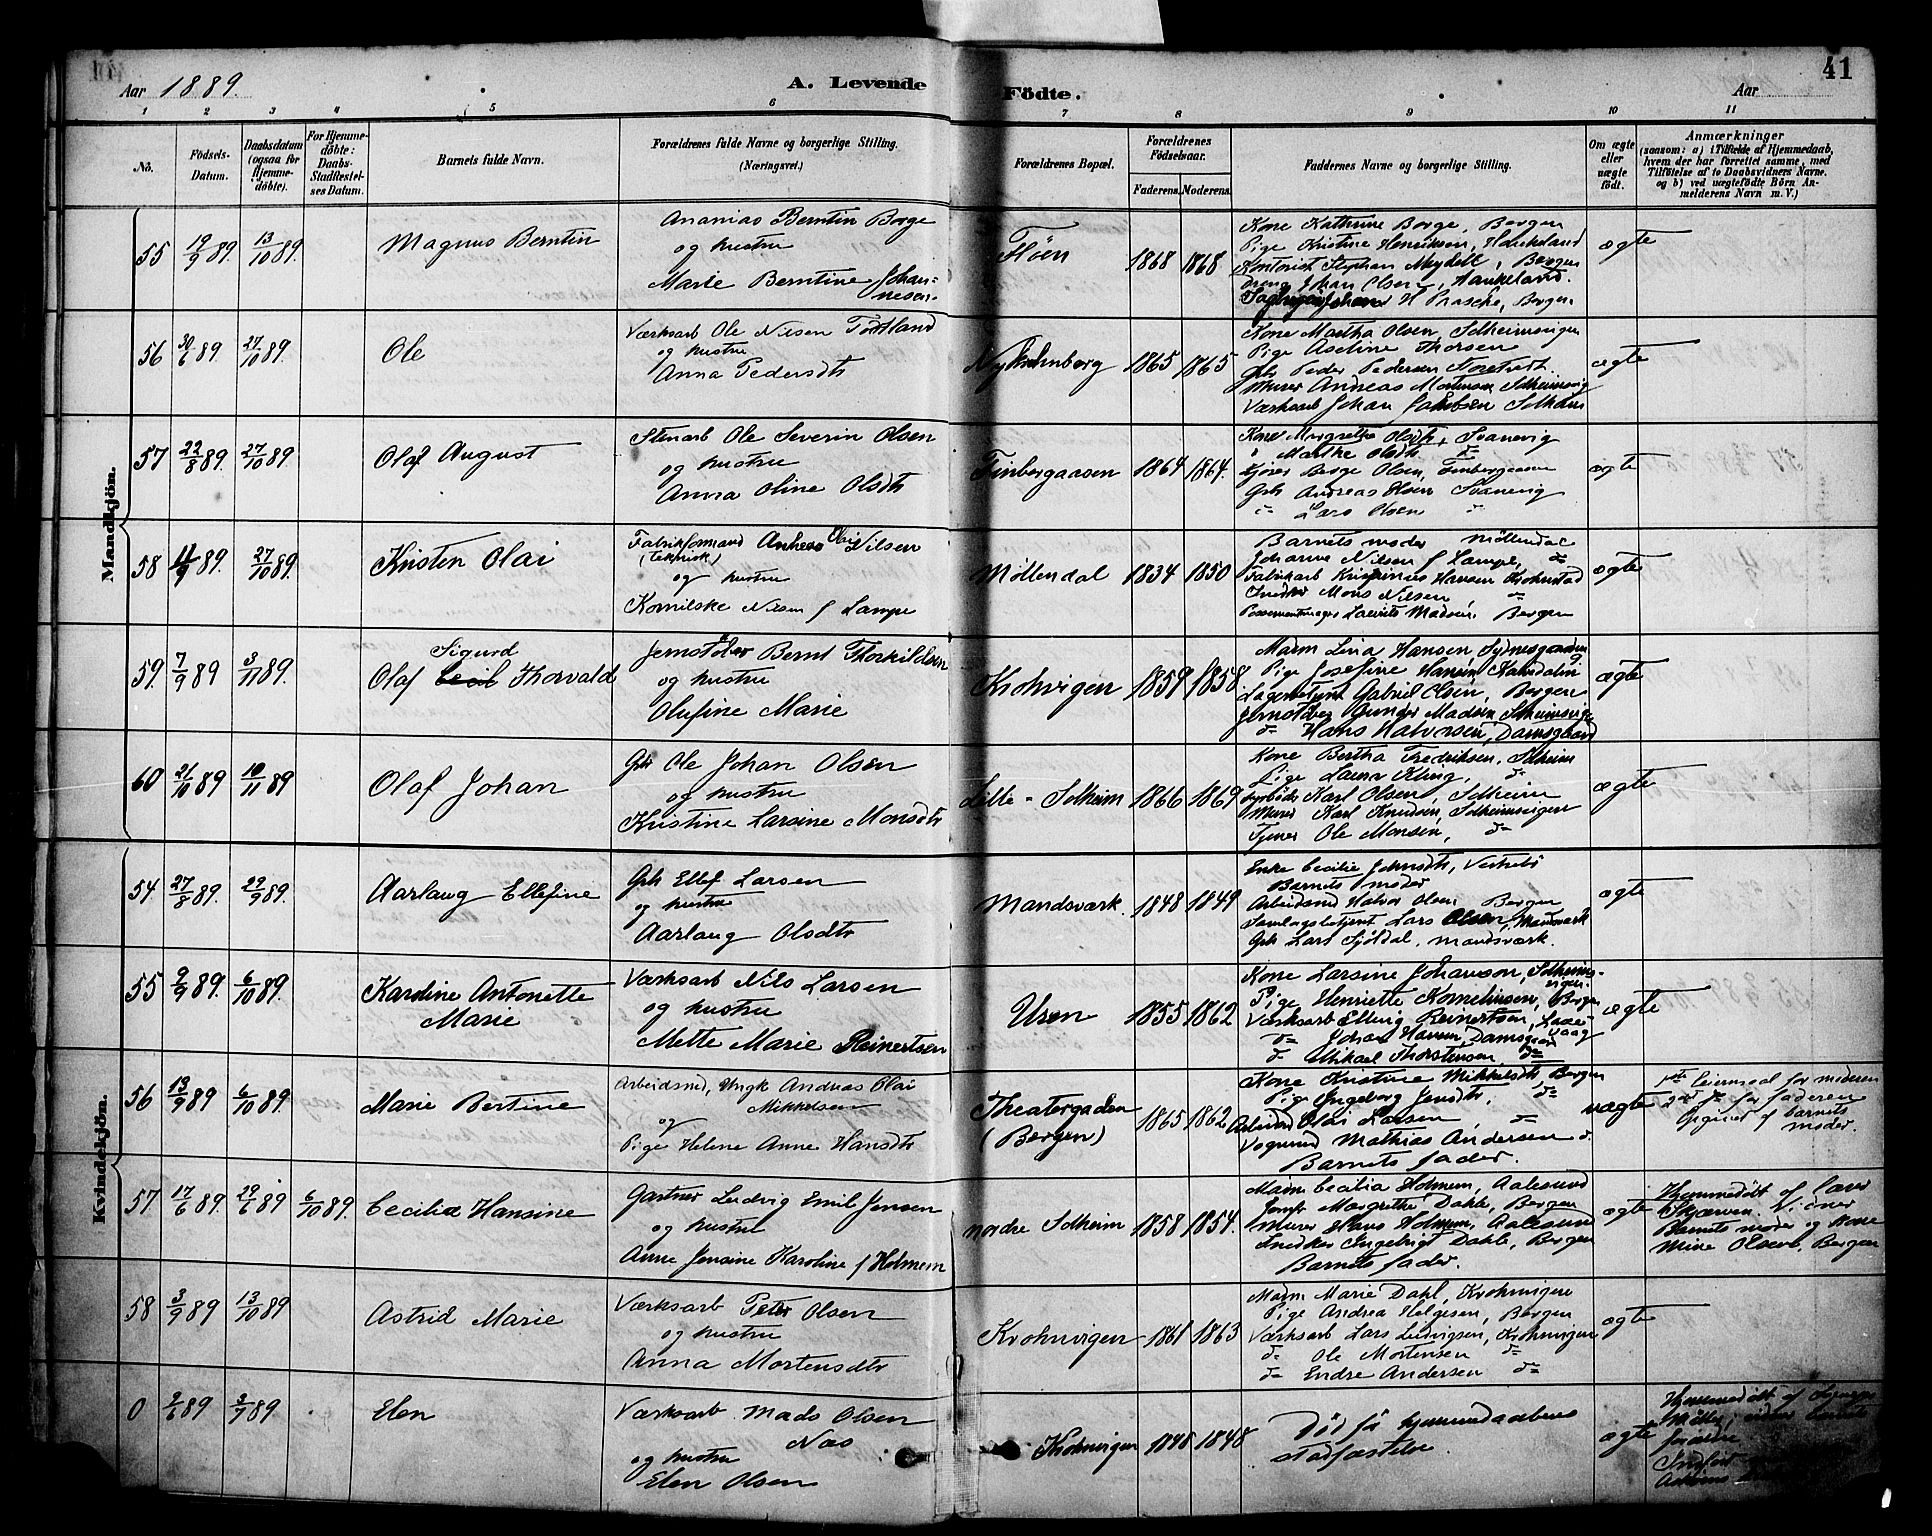 41
Aar 1889.
A. Levende Födte.
Aar
1 2 3 4 5 6 7 8 9 10 11
No.
Födsels-Datum.
Daabsdatum (ogsaa for Hjemmedöbte).
For Hjemmedöbte: Daabs-Stadfæstelses Datum.
Barnets fulde Navn.
Forældrenes fulde Navne og borgerlige Stilling.
(Næringsvei.)
Forældrenes Bopæl.
Forældrenes Födselsaar.
Faderens. Moderens.
Faddernes Navne og borgerlige Stilling.
Om ægte eller uægte födt.
Anmærkninger
(saasom: a) i Tilfælde af Hjemmedaab, hvem der har forrettet samme, med Tilföielse af to Daabsvidners Navne, og b) ved uægtefödte Börn Anmelderens Navn m. V.)
Mandkjön.
55 19/9 89. 13/10 89. Magnus Berntin
Ananias Berntin Borge
og hustru
Marie Berntine Johannesen.
Fløen 1868 1868
Kone Kathrine Borge, Bergen
Pige Kristine Henriksen, Haukeland
Kontorist Stephan Meydell, Bergen
Dreng Johan Olsen, Haukeland.
H Prasche, Bergen
ægte
56 30/6 89 27/10 89. Ole
Værksarb Ole Nilsen Todland
og hustru
Anna Pedersdtr
Nykrohnborg 1865 1865
Kone Martha Olsen, Solheimsvigen
Pige Aseline Thorsen
Gbr Peder Pedersen
Murer Andreas Mortensen Solheimsvig
Værksarb Johan Jakobsen Solheim
ægte
57 22/8 89. 27/10 89 Olaf August
Stenarb Ole Severin Olsen
og hustru
Anna Oline Olsdtr
Finbergaasen 1864 1864.
Kone Margrethe Olsdtr, Svanevig
" Marthe Olsdtr do
Børge Olsen, Finbergaasen
Gbr Andreas Olsen Svanevig
do Lars Olsen "
ægte
58 11/9 89. 27/10 89. Kristen Olai
Fabrikformand Andreas Olai Nilsen
(teknisk)
og hustru
Kornilske Nilsen f Lampe
Møllendal 1834 1850
Barnets moder Møllendal
Johanne Nilsen f Lampe, do
Fabrikarb Hansen Krohnstad
Snedker Mons Nilsen, do
Laurits Madsen, Bergen
ægte
59. 7/9 89 3/11 89. Olaf Sigurd Thorvald
Jernstøber Bernt Thorkildsen
og hustru
Olufine Marie
Krohnvigen 1859 1858
Madm Lina Hansen, Sydnesgaarden
Pige Josefine Hansen, Kalfadalien
Gabriel Olsen, Bergen
Jernstøber Gunder Madsen Solheimsvig
do Hans Halvorsen, Damsgaard
ægte
60 21/10 89 10/11 89 Olaf Johan
Gbr Ole Johan Olsen
og hustru
Kristine Larsine Monsdtr
Lille-Solheim 1866 1869
Kone Bertha Fredriksen, Solheim
Pige Laura Kling, do
Fyrbøder Karl Olsen, Solheim
Murer Karl Knudsen, Solheimsvigen
Tjener Ole Monsen, do
ægte
Kvindekjön.
54 27/8 89. 29/9 89. Aarlaug Ellefine
Gbr Ellef Larsen
og hustru
Aarlaug Olsdtr
Mandsværk. 1848 1849
Enke Cecilie Johnsdtr, Vestrebø
Barnets moder
Arbeidsmd Halvor Olsen Bergen
Samlagsbetjent Lars Olsen, Mandsværk
Gbr Lars Sjöldal, Mandsværk.
ægte
55 9/9 89. 6/10 89. Karoline Antonette Marie
Værksarb Nils Larsen
og hustru
Mette Marie Reinertsen
Uren 1855 1862
Kone Larsine Johanson, Solheimsvigen.
Pige Henriette Korneliusen, Bergen
Værksarb Elling Reinertsen, Laxevaag
do Johan Hansen, Damsgaard
do Mikael Thorstensen do
ægte
56 13/9 89 6/10 89. Marie Bertine
Arbeidsmd, Ungk Andreas Olai Mikkelsen
og
Pige Helene Anne Hansdtr
Theatergaden (Bergen) 1865 1862
Kone Kristine Mikkelsdtr, Bergen
Pige Ingeborg Jensdtr, do
Arbmd Olai Larsen do
Vognmd Mathias Andersen do.
Barnets fader.
uægte
1ste Leiermaal for moderen
2det do for faderen
Opgivet af barnets moder.
57 17/6 89. 29/6 89 6/10 89. Cecilia Hansine
Gartner Ludvig Emil Jensen
og hustru
Anne Jensine Karoline f Holmem
Nordre Solheim 1858 1854.
Madm Cecilia Holmem, Aalesund
Jomf Margrethe Dahle, Bergen
Murer Hans Holmem, Aalesund
Snedker Ingebrigt Dahle, Bergen
Barnets fader.
ægte
Hjemmedøbt af lærer
Skjærven. Vidner
Barnets moder og kone
Mine Olsen, Bergen
58 3/9 89 13/10 89 Astrid Marie
Værksarb Peter Olsen
og hustru
Anna Mortensdtr
Krohnvigen 1861 1863
Madm Marie Dahl, Krohnvigen
Pige Andrea Helgesen, Bergen
Værksarb Lars Ludvigsen, Krohnvigen
do Ole Mortensen do
do Endre Andersen do
ægte
0 2/6 89 3/7 89 Elen
Værksarb. Mads Olsen
Næs
og hustru
Elen Olsen
Krohnvigen 1848 1848
Død før hjemmedaabens
stadfæstelse.
ægte
Hjemmedøbt af
vidner barnets
forældre
Indført